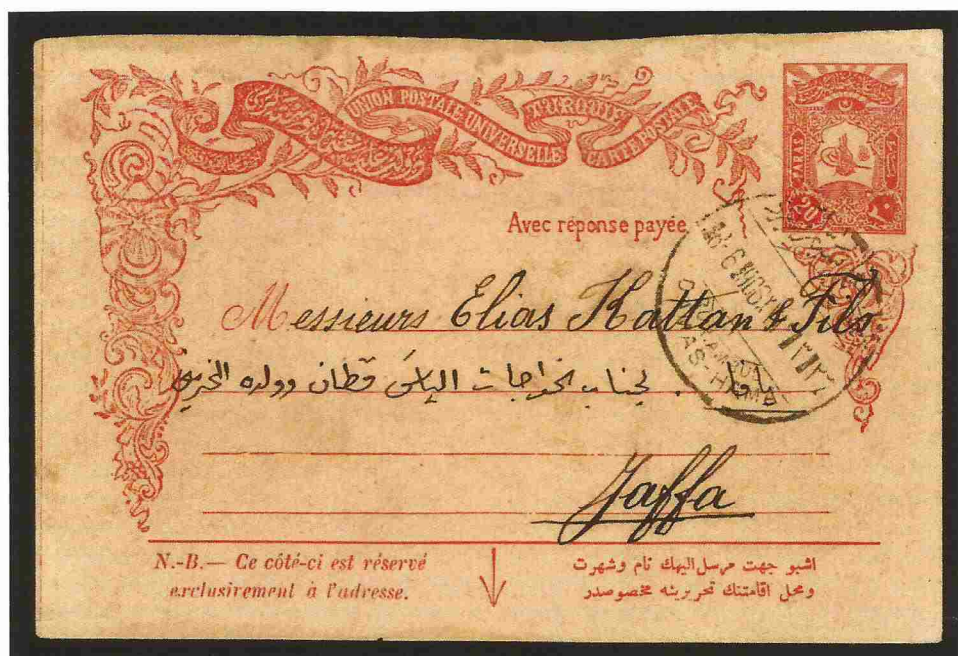 UNION POSTALE UNIVERSELLE
TURQUIE
CARTE POSTALE
20 PARAS
٢٠
Avec réponse payée
Messieurs Elias Kattan & Fils
لجناب الخواجات الياس قطان وولده
Jaffa
N.-B.— Ce côté-ci est réservé
exclusivement à l'adresse.
اشبو جهت مرسل اليهك نام وشهرت
ومحل اقامتنك تحريرينه مخصوصدر